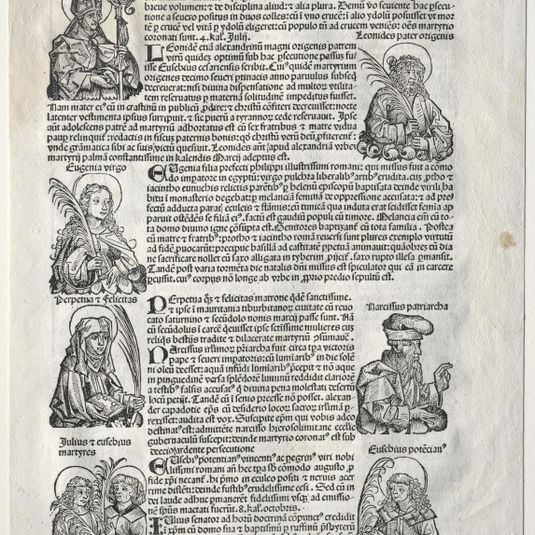 bacue volumen: z de disciplina aliud: z alia plura. Demū vo seuiente hac psecu-
tione a seucio positus in duos colles: cū i vno crucē: i alio ydolū posuisset vt mor-
tē p crucē vel vitā p ydolū eligeret: cū populo tn̄ ad crucem veniēs: oēs martyrio
coronati sunt. 4. kal. Julij.
Leonides pater origenis
LEonidē etiā alexandrinū magni origenis patrem
virū quidez optimū sub hac psecutione passuz fu-
isse Eusebius cesariensis scribit. Cuiꝰ quidē martyrium
origenes decimo seueri ptinacis anno paruulus subseq
decreuerat: nisi diuina dispensatione ad multoꝝ vtilita-
tem reseruatus p materna solitudinē impeditus fuisset.
Nam mater eiꝰ cū in crastinū in publicū pderet: z christū cōfiteri decreuisset: nocte
latenter vestimenta ipsius surripuit. z sic puerū a tyrannoꝝ cede reseruauit. Ipse
aūt adolescens patrē ad martyriū adhortatus est cū sex fratribus z matre vidua
paup relinquit: redactis in fiscuz paternis bonis: qꝫ christū verū deū pfiterent:
vnde grāmatica sibi ac suis victū quesiuit. Leonides aūt apud alexandriā vrbez
martyrij palmā constantissime in kalendis Marcij adeptus est.
Eugenia virgo
EUgenia filia prefecti philippi illustrissimi romani: qui missus fuit a cōmo-
do imperatore in egyptū: virgo pulchra liberalibꝰ artibꝰ erudita. cuz ptho z
iacintho eunuchis relictis parētibꝰ p helenū episcopū baptisata deinde virili ha-
bitu i monasterio degebat: p melanciā femina de oppressione accusata: z ad pre-
fectū adducta parat eculeis z flāmis: cū tunicā qua induta erat scidisset femīa ap-
paruit ostēdēs se filiā eiꝰ. factū est gaudiū populi cū timore. Melancia em̄ cū to-
ta domo diuino igne cōsūpta est. Genitores baptisanť cū tota familia. Postea
cū matre z fratribꝰ: protho z iacintho romā reuersi sunt plures exemplo virtutū
ad fidē puocarūt: precipue basillā ad castitatē ppetuā animauit: quāobrez cū dia-
ne sacrificare nollet cū saxo alligata in tyberim pijciť. saxo rupto illesa pmansit.
Tandē post varia tormēta die natalis dn̄i missus est spiculator qui eā in carcere
pcussit. cuiꝰ corpus nō longe ab vrbe in prio predio sepultū est.
Perpetua z felicitas
PErpetua qꝫ z felicitas matrone qdē sanctissime.
z ipse i mauritania tiburbitanoꝝ ciuitate cū reuo-
cato saturnino z secūdolo nonis marcij passe sunt. Nā
cū secūdolus i carcē qeuisset ipse sctissime mulieres cuz
reliqs bestijs tradite z dilacerate martyriū psūmauē.
Narcissus patriarcha
NArcissus irsimoꝝ priarcha fuit circa tpa victoris
pape z seueri impatoris: cū lumiaribꝰ in die solē-
ni oleū deesset: aquā infūdi luminaribꝰ pcepit z nō aque
in pinguedinē versa splēdorē luminū reddidit clariorē
a testibꝰ falsis accusatꝰ qꝫ diuina pena molestati deserū
locū petijt. Tandē cū i senio precesse nō posset. alexan-
der capadotie epūs cū desiderio locoꝝ sacroꝝ irsimā p-
rexisset: audita est vox. Suscipite epm̄ qui vobis adeo
destinatꝰ est: admittēte narcisso hierosolimitane ecclie
gubernaculū suscepit: deinde martyrio coronatꝰ est sub
decio mordente persecutione
Julius z eusebius
martyres
Eusebius potēcianꝰ
EUsebiꝰ potentianꝰ vincentiꝰ ac pegrinꝰ viri nobi-
lissimi romani an̄ hec tpa sb cōmodo augusto p
fide xpi necanť. hi pmo in eculeo positi z neruis acer-
rime distēti: deinde fustibꝰ crudelissime cesi. Sed cū in
dei laude adhuc pmanerēt fidelissimi vsqꝫ ad emissio-
nē spūs mactati fuerūt. 8. kal. octobris.
IUlius senator ad horū doctrinā cōpunctꝰ credidit
i xpm̄ cū domo sua z baptismū p ruffinū psbyterū